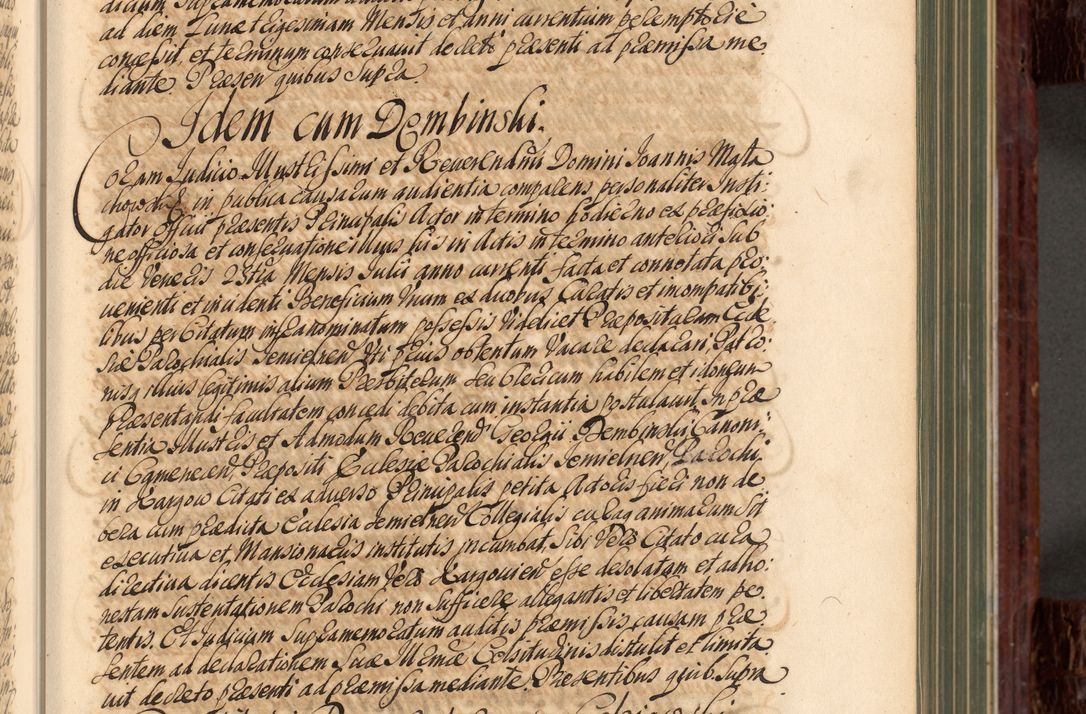 ad diem Lunæ Vigesimam Mensis et anni currentium peremptorie
concessit, et terminum conservavit decreto præsenti ad præmissa me
diante. Præsen quibus Supra.
Idem cum Dembinski.
Coram Judicio Illustrissimi et Reverendissi Domini Joannis Mała
chowski in publica causarum audientia comparens personaliter Insti:
gator Officii præsentis Principalis Actor in termino hodierno ex præfixio
ne officiosa et conservatione illius sui in Actis in termino anteriori sub
die Veneris 28tia Mensis Julii anno currenti facta et connotata pro
venienti et incidenti Beneficium Unum ex duobus Curatis et incompatibi
libus per Citatum infranominatum possessis Videlicet Præposituram Eccle
siæ Parochialis Jemielnen Uti prius obtentum Vacare declarari, Patro:
nisq illius legitimis alium Præsbiterum seu Clericum habilem et idoneum
Præsentandi facultatem concedi debita cum instantia postulavit. In præ
sentia Illustris et Admodum Reverend Georgii Dembinski Canoni:
ci Camenecen, Præpositi Ecclesiæ Parochialis Jemielnen, Parochi
in Kargow Citati ex adverso Principalis petita Actoris fieri non de
bera cum prædicta Ecclesia Jemielnen Collegialis curaq animarum sit
executiva et Mansionariis institutis incumbat, Sibi Vero Citato cura
directiva dicentis Ecclesiam Vero Kargovien esse desolatam et ad ho:
nestam Sustentationem Parochi non Sufficere allegantis et libertatem pe
tentis. Et Judicium Supramemoratum auditis præmissis causam præ
sentem ad declarationem Suæ Celsitudinis distulit et limita
vit decreto præsenti ad præmissa mediante. Præsentibus quib. Supra